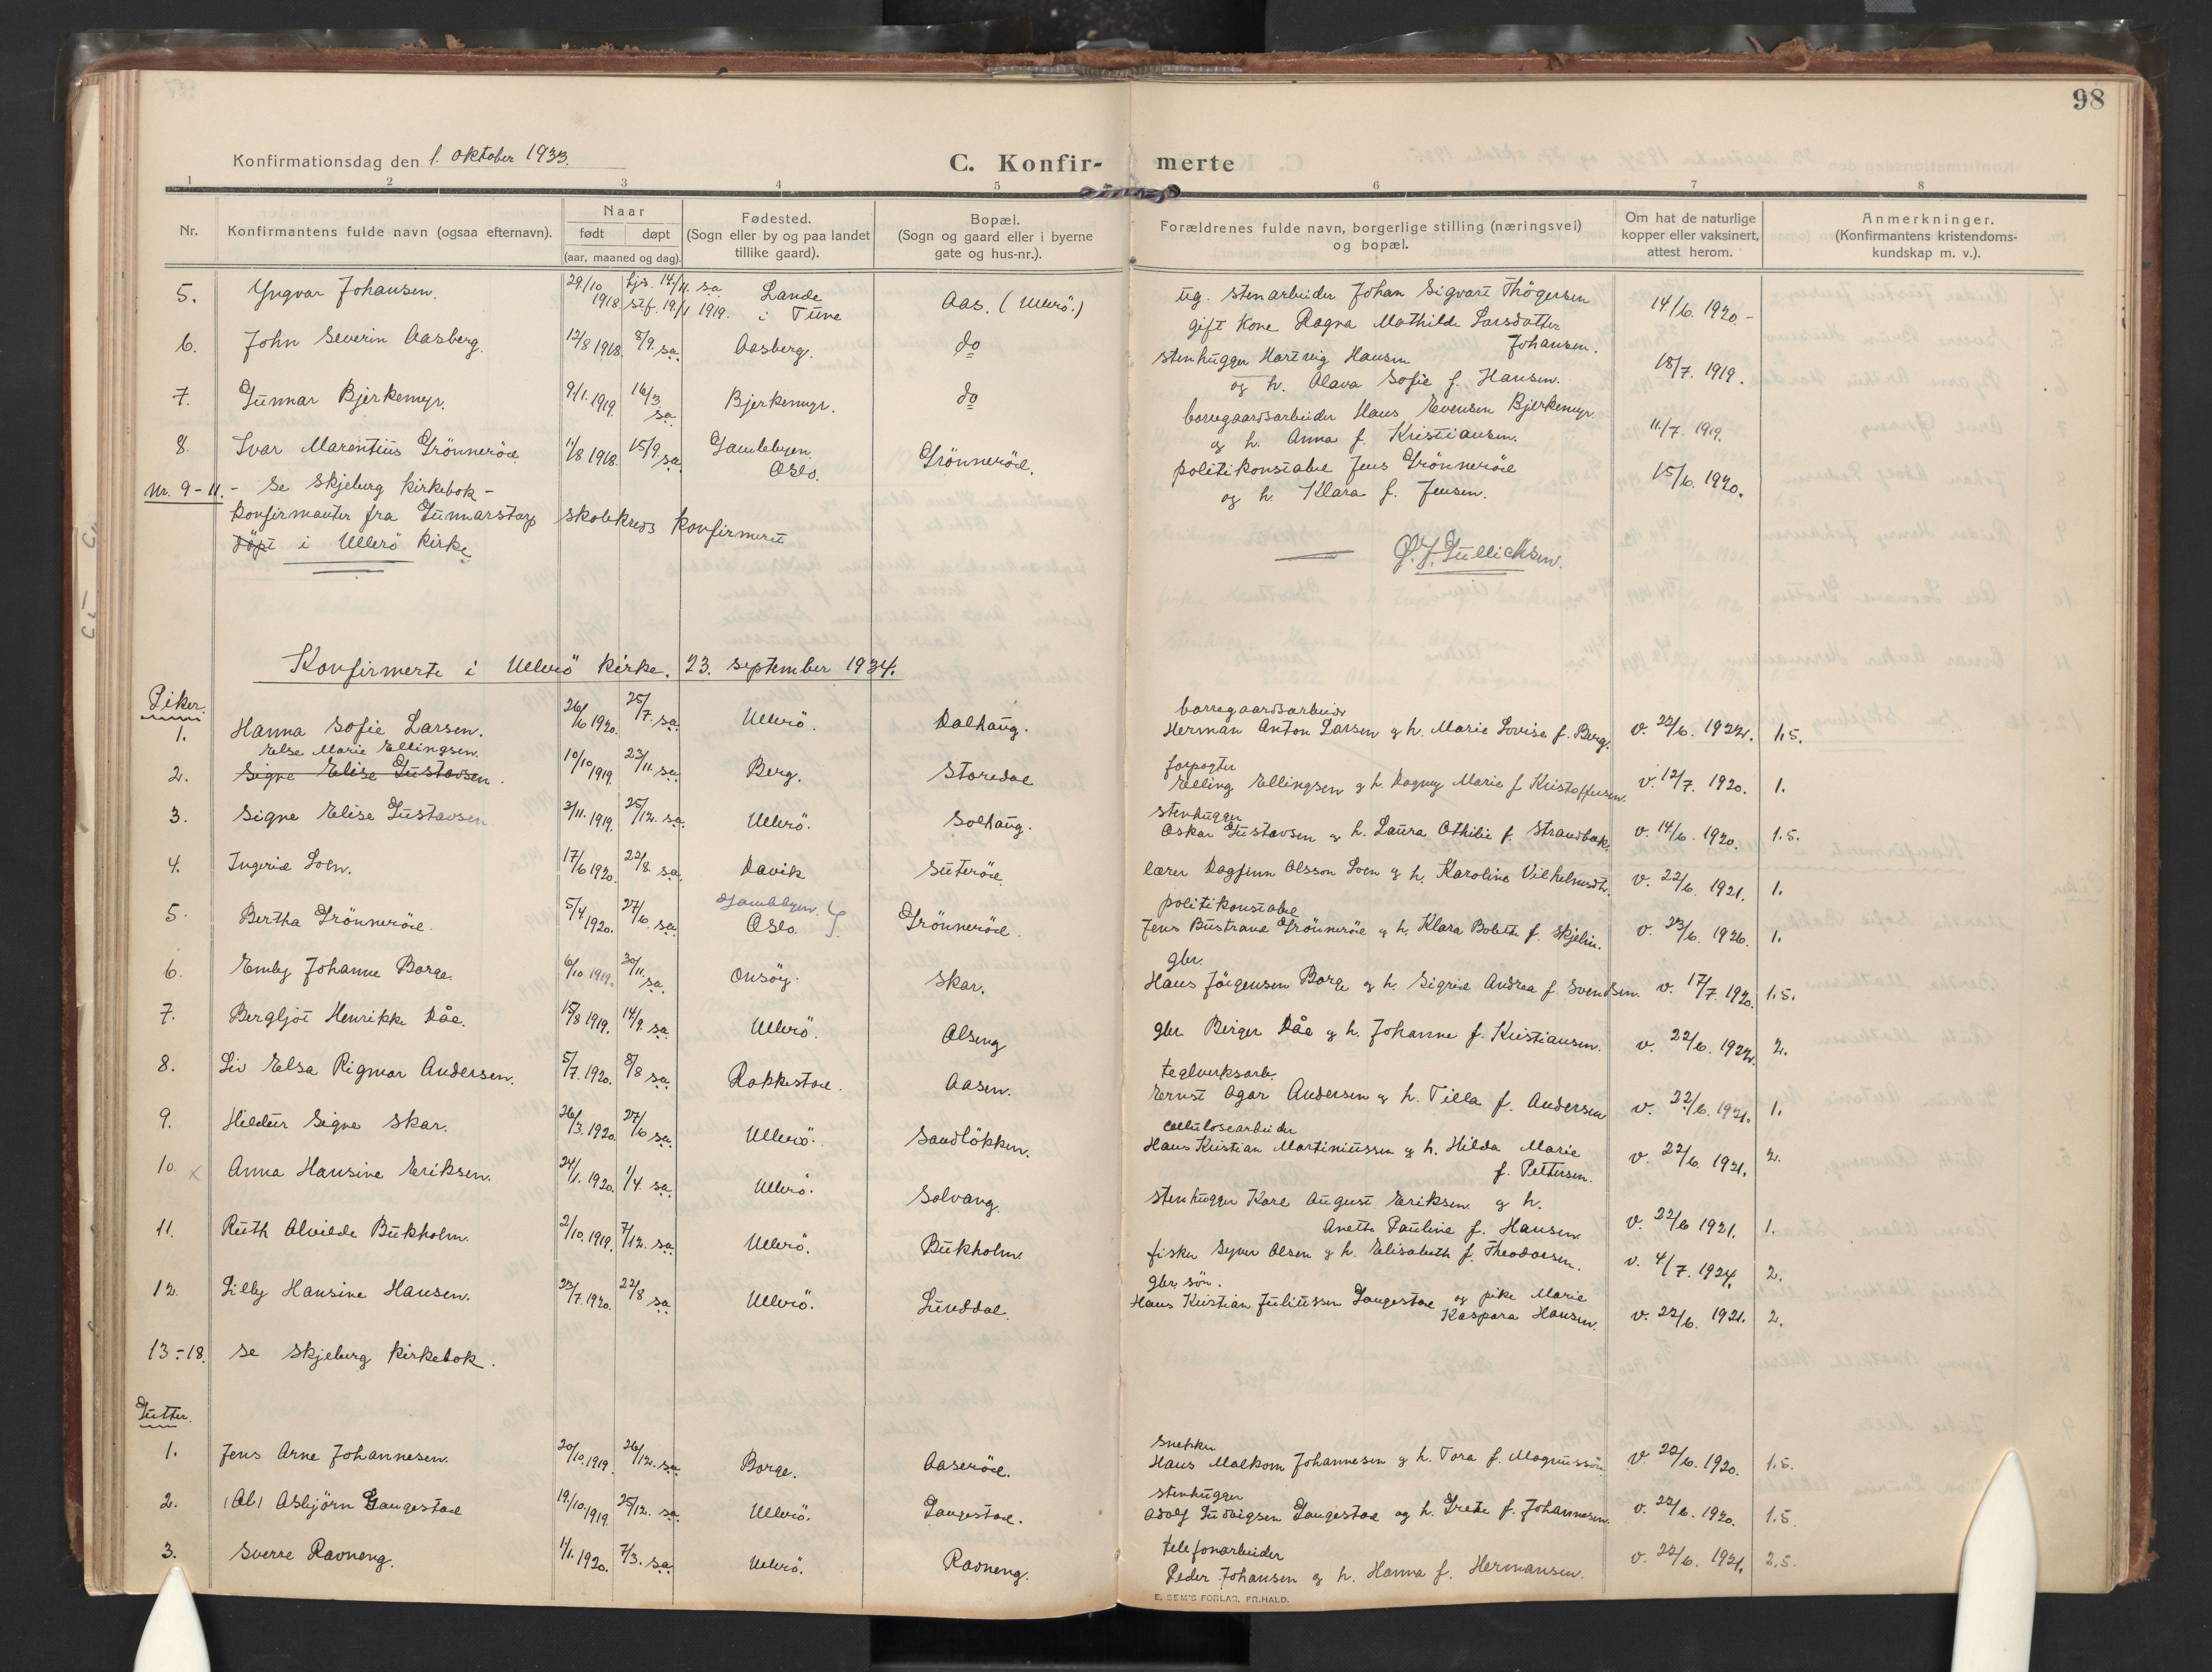 98
Konfirmationsdag den 1. oktober 1933.
C. Konfir-
merte
1 2 3 4 5 6 7 8
Nr.
Konfirmantens fulde navn (ogsaa efternavn).
Naar
født døpt
(aar, maaned og dag).
Fødested.
(Sogn eller by og paa landet
tillike gaard).
Bopæl.
(Sogn og gaard eller i byerne
gate og hus-nr.).
Forældrenes fulde navn, borgerlige stilling (næringsvei)
og bopæl.
Om hat de naturlige
kopper eller vaksinert,
attest herom.
Anmerkninger.
(Konfirmantens kristendoms-
kundskap m. v.).
5. Yngvar Johansen. 29/10 1918 hjd. 14/11. sa. stf. 19/1 1919. Lande i Tune Aas. (Ullerö.) ug. stenarbeider Johan Sigvart Thögersen 14/6. 1920.-
gift kone Ragna Mathilde Larsdatter
Johansen.
6. John Severin Aasberg. 12/8 1918. 8/9. sa. Aasberg. do stenhugger Hartvig Hansen 18/7. 1919.
og h. Olava Sofie f. Hansen.
7. Gunnar Bjerkemyr. 9/1. 1919. 16/3 sa. Bjerkemyr. do borregaardsarbeider Hans Evensen Bjerkemyr 11/7. 1919.
og h. Anna f. Kristiansen.
8. Ivar Marentius Grönneröd 11/8 1918. 15/9. sa. Gamlebyen. Oslo. Grönneröd. politikonstabel Jens Grönneröd 15/6. 1920.
og h. Klara f. Jensen.
Nr. 9-11. - Se Skjeberg kirkebok -
konfirmanter fra Gunnarstorp skolekreds konfirmeret
döpt i Ullerö kirke
Ø. J. Gullichsen.
Konfirmerte i Ullerö kirke. 23. september 1934.
Piker.
1. Hanna Sofie Larsen. 26/6 1920. 25/7. sa. Ullerö. Dalhaug. borregaardsarbeider
Herman Anton Larsen og h. Marie Lovise f. Berg. v. 22/6. 1922. 1,5.
Else Marie Ellingsen.
2. Signe Elise Gustavsen. 10/10 1919. 23/11. sa. Berg. Storedal forpagter
Elling Ellingsen og h. Dagny Marie f. Kristoffersen. v. 12/7. 1920. 1.
3. Signe Elise Gustavsen 2/11. 1919. 25/12. sa. Ullerö. Solhaug. stenhugger
Oskar Gustavsen og h. Laura Othilie f. Strandbak. v. 14/6. 1920. 1.5.
4. Ingerid Loen. 17/6 1920. 22/8. sa. Davik Suteröd. lærer Dagfinn Olsson Loen og h. Karoline Vilhelmsdtr. v. 22/6. 1921. 1.
5. Bertha Grönneröd. 5/4 1920. 27/6. sa. Gamlebyen. Oslo. Grönneröd. politikonstabel
Jens Bustrane Grönneröd og h. Klara Bolette f. Skjelin. v. 23/6. 1926. 1.
6. Emly Johanne Borge. 6/10 1919. 30/11. sa. Onsöy. Skar. gbr.
Hans Jörgensen Borge og h. Sigrid Andrea f. Svendsen. v. 17/7. 1920. 1.5.
7. Bergljot Henrikke Dåe. 15/8 1919. 14/9. sa. Ullerö. Olseng gbr. Birger Dåe og h. Johanne f. Kristiansen. v. 22/6. 1922. 2.
8. Liv Elsa Rigmor Andersen. 5/7. 1920. 8/8 sa. Rakkestad. Aasen. teglverksarb.
Ernst Agar Andersen og h. Tilla f. Andersen v. 22/6. 1921. 1.
9. Hildur Signe Skar. 26/3. 1920. 27/6 sa. Ullerö. Sandlökken. cellulosearbeider
Hans Kristian Martiniussen og h. Hilda Marie f. Pettersen. v. 22/6. 1921. 2.
10. x Anna Hansine Eriksen. 24/1. 1920. 1/4. sa. Ullerö. Solvang. stenhugger Karl August Eriksen og h.
Anette Pauline f. Hansen v. 22/6 1921. 1.
11. Ruth Alvilde Bukholm. 2/10. 1919. 7/12. sa. Ullerö. Bukholm. fisker Syver Olsen og h. Elisabeth f. Theodorsen. v. 4/7. 1924. 2.
12. Lilly Hansine Hansen. 23/7. 1920. 22/8 sa. Ullerö. Lunddal. gbr. sön.
Hans Kristian Juliussen Langestad og pike Marie Kaspara Hansen. v. 22/6. 1921. 2.
13-18. se Skjeberg kirkebok.
Gutter.
1. Jens Arne Johannesen. 20/10. 1919. 26/12. sa. Borge. Aaseröd. snekker
Hans Malkom Johannesen og h. Tora f. Magnussön. v. 22/6. 1920. 1.5.
2. (Al) Asbjörn Langestad 19/10. 1919. 25/12. sa. Ullerö. Langestad. stenhugger
Adolf Ludvigsen Langestad og h. Grete f. Johannesen. v. 22/6. 1920. 1.5.
3. Sverre Ravneng. 1/1. 1920. 7/3. sa. Ullerö. Ravneng. telefonarbeider
Peder Johansen og h. Hanna f. Hermansen. v. 22/6. 1921. 2,5.
E. SEM'S FORLAG, FR.HALD.